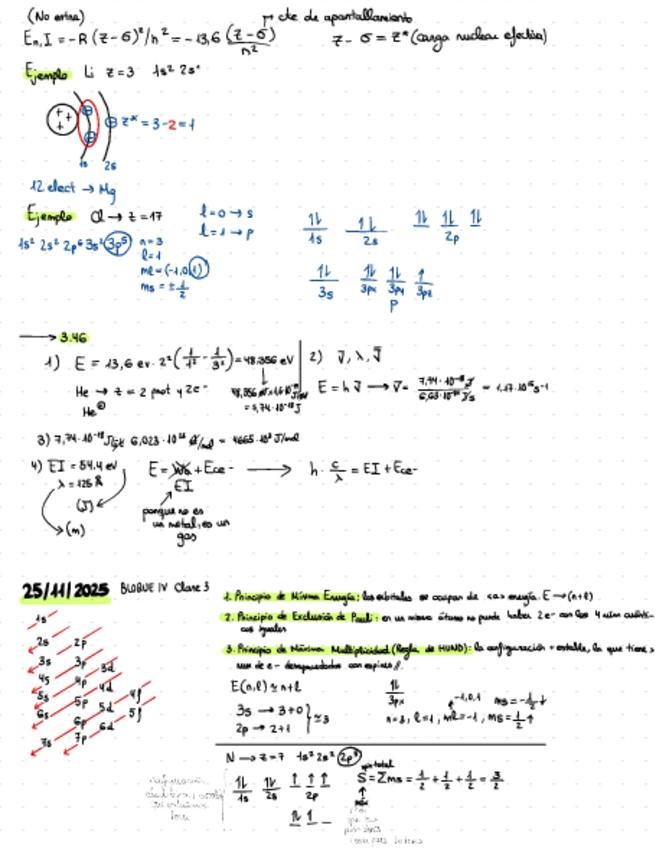 (No entra)
cte de apantallamiento
En,I = -R (Z-σ)²/n² = -13,6 (Z-σ)/n²
Z - σ = Z* (carga nuclear efectiva)
Ejemplo Li Z=3 1s² 2s¹
Z* = 3-2 = 1
1s 2s
12 elect → Mg
Ejemplo Cl → Z=17
l=0 → s
l=1 → p
1s² 2s² 2p⁶ 3s² 3p⁵
n=3
l=1
ml = (-1,0,1)
ms = ± 1/2
1s 2s 2p
3s 3px 3py 3pz
p
→ 3.46
1) E = 13,6 eV · 2² (1/1² - 1/3²) = 48,356 eV
He → Z = 2 prot y 2e-
= 7,74·10⁻¹⁸ J
2) ν, λ, ν̄
E = h ν → ν = 7,74·10⁻¹⁸ J / 6,63·10⁻³⁴ J/s = 1,17·10¹⁶ s-1
3) 7,74·10⁻¹⁸ 6,023·10²³ = 4665·10³ J/mol
4) EI = 54.4 eV
λ = 125 Å
(J)
(m)
E = W₀ + Ece-
EI
→ h · c/λ = EI + Ece-
porque no es
un metal, es un
gas
25/11/2025 BLOQUE IV Clase 3
1. Principio de Mínima Energía: los orbitales se ocupan de <a> energía. E → (n+l)
2. Principio de Exclusión de Pauli: en un mismo átomo no puede haber 2e- con los 4 núm cuánti-
cos iguales
3. Principio de Máxima Multiplicidad (Regla de HUND): la configuración + estable, la que tiene >
num de e- desapareados con espines
1s
2s 2p
3s 3p 3d
4s 4p 4d 4f
5s 5p 5d 5f
6s 6p 6d
7s 7p
E(n,l) ≃ n+l
3s → 3+0
2p → 2+1
≃ 3
3px
-1,0,1
ms = -1/2 ↓
n=3, l=1, ml=-1, ms = 1/2 ↑
N → Z=7 1s² 2s² 2p³
1s 2s 2p
spin total
S = Σms = 1/2 + 1/2 + 1/2 = 3/2